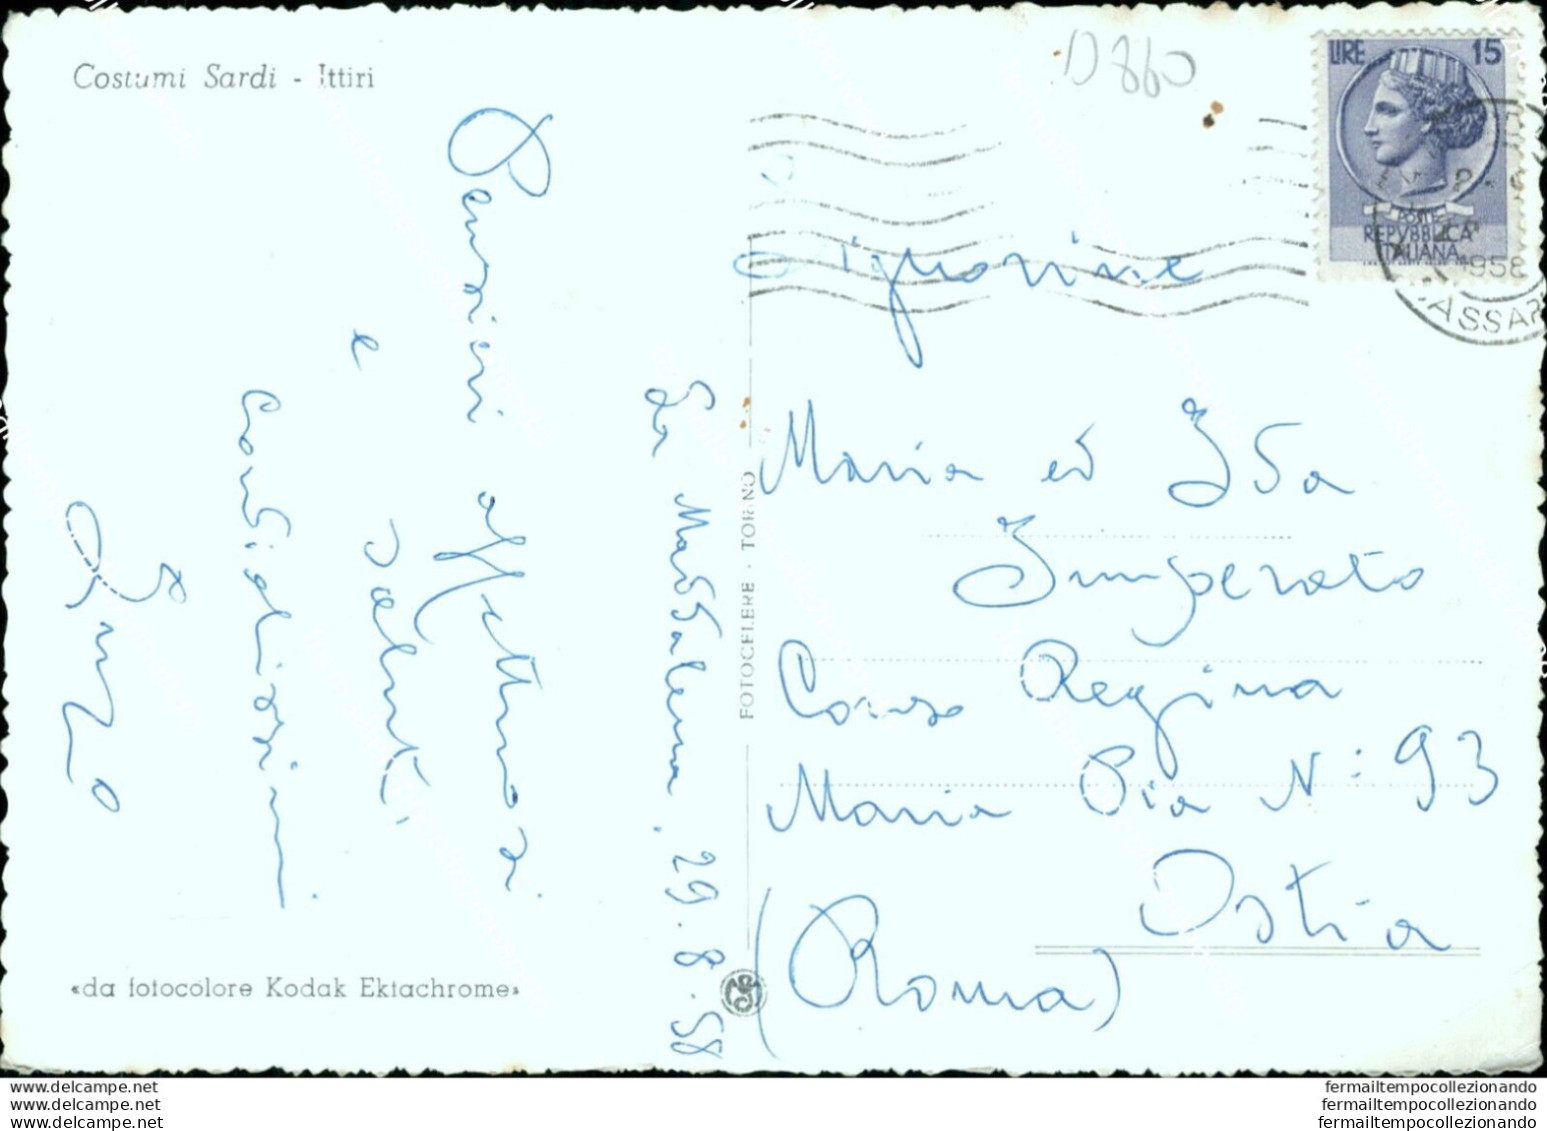 Costumi Sardi - Ittiri
D 860
LIRE 15
POSTE
REPVBBLICA
ITALIANA
1958
SASSARI
Pensieri affettuosi
e
saluti
cordialissimi
Enzo
La Maddalena, 29.8.58
FOTOCELERE · TORINO
Signorine
Maria ed Ida
Imperato
Corso Regina
Maria Pia N: 93
Ostia
(Roma)
«da fotocolore Kodak Ektachrome»
www.delcampe.net
www.delcampe.net
www.delcampe.net
fermailtempocollezionando
fermailtempocollezionando
fermailtempocollezionando